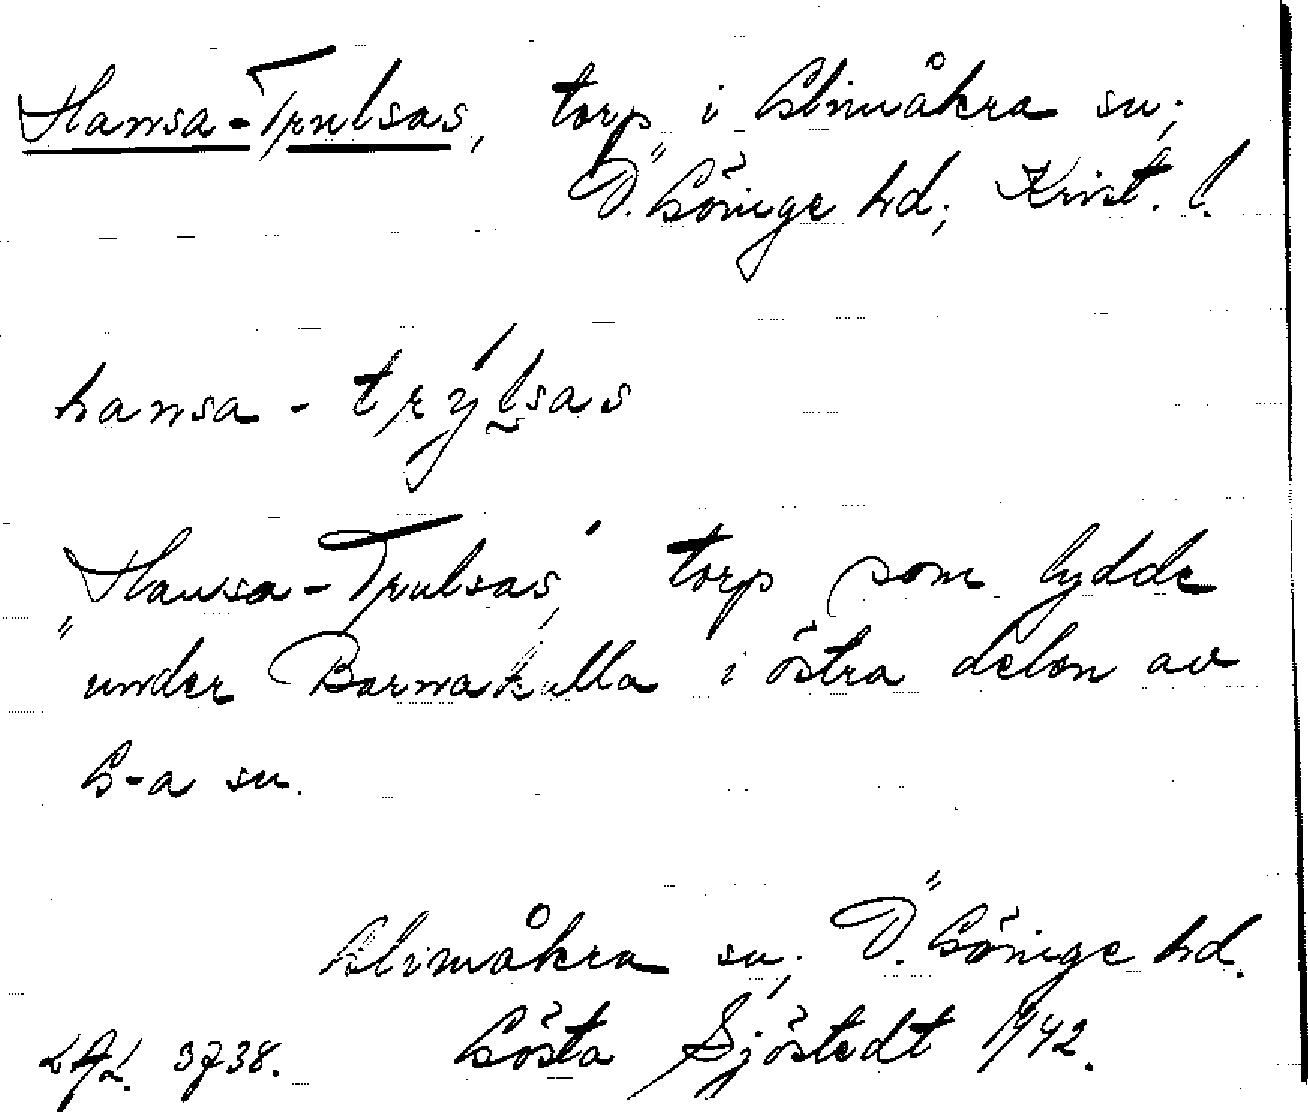 Hansa-Trulsas, torp i Glimåkra sn;
Ö. Göinge hd; Krist. l.
hansa - trýlsas
"Hansa-Trulsas", torp som lydde
under Barnakulla i östra delen av
G-a sn.
Glimåkra sn; Ö. Göinge hd.
LAL. 3738. Gösta Sjöstedt 1942.